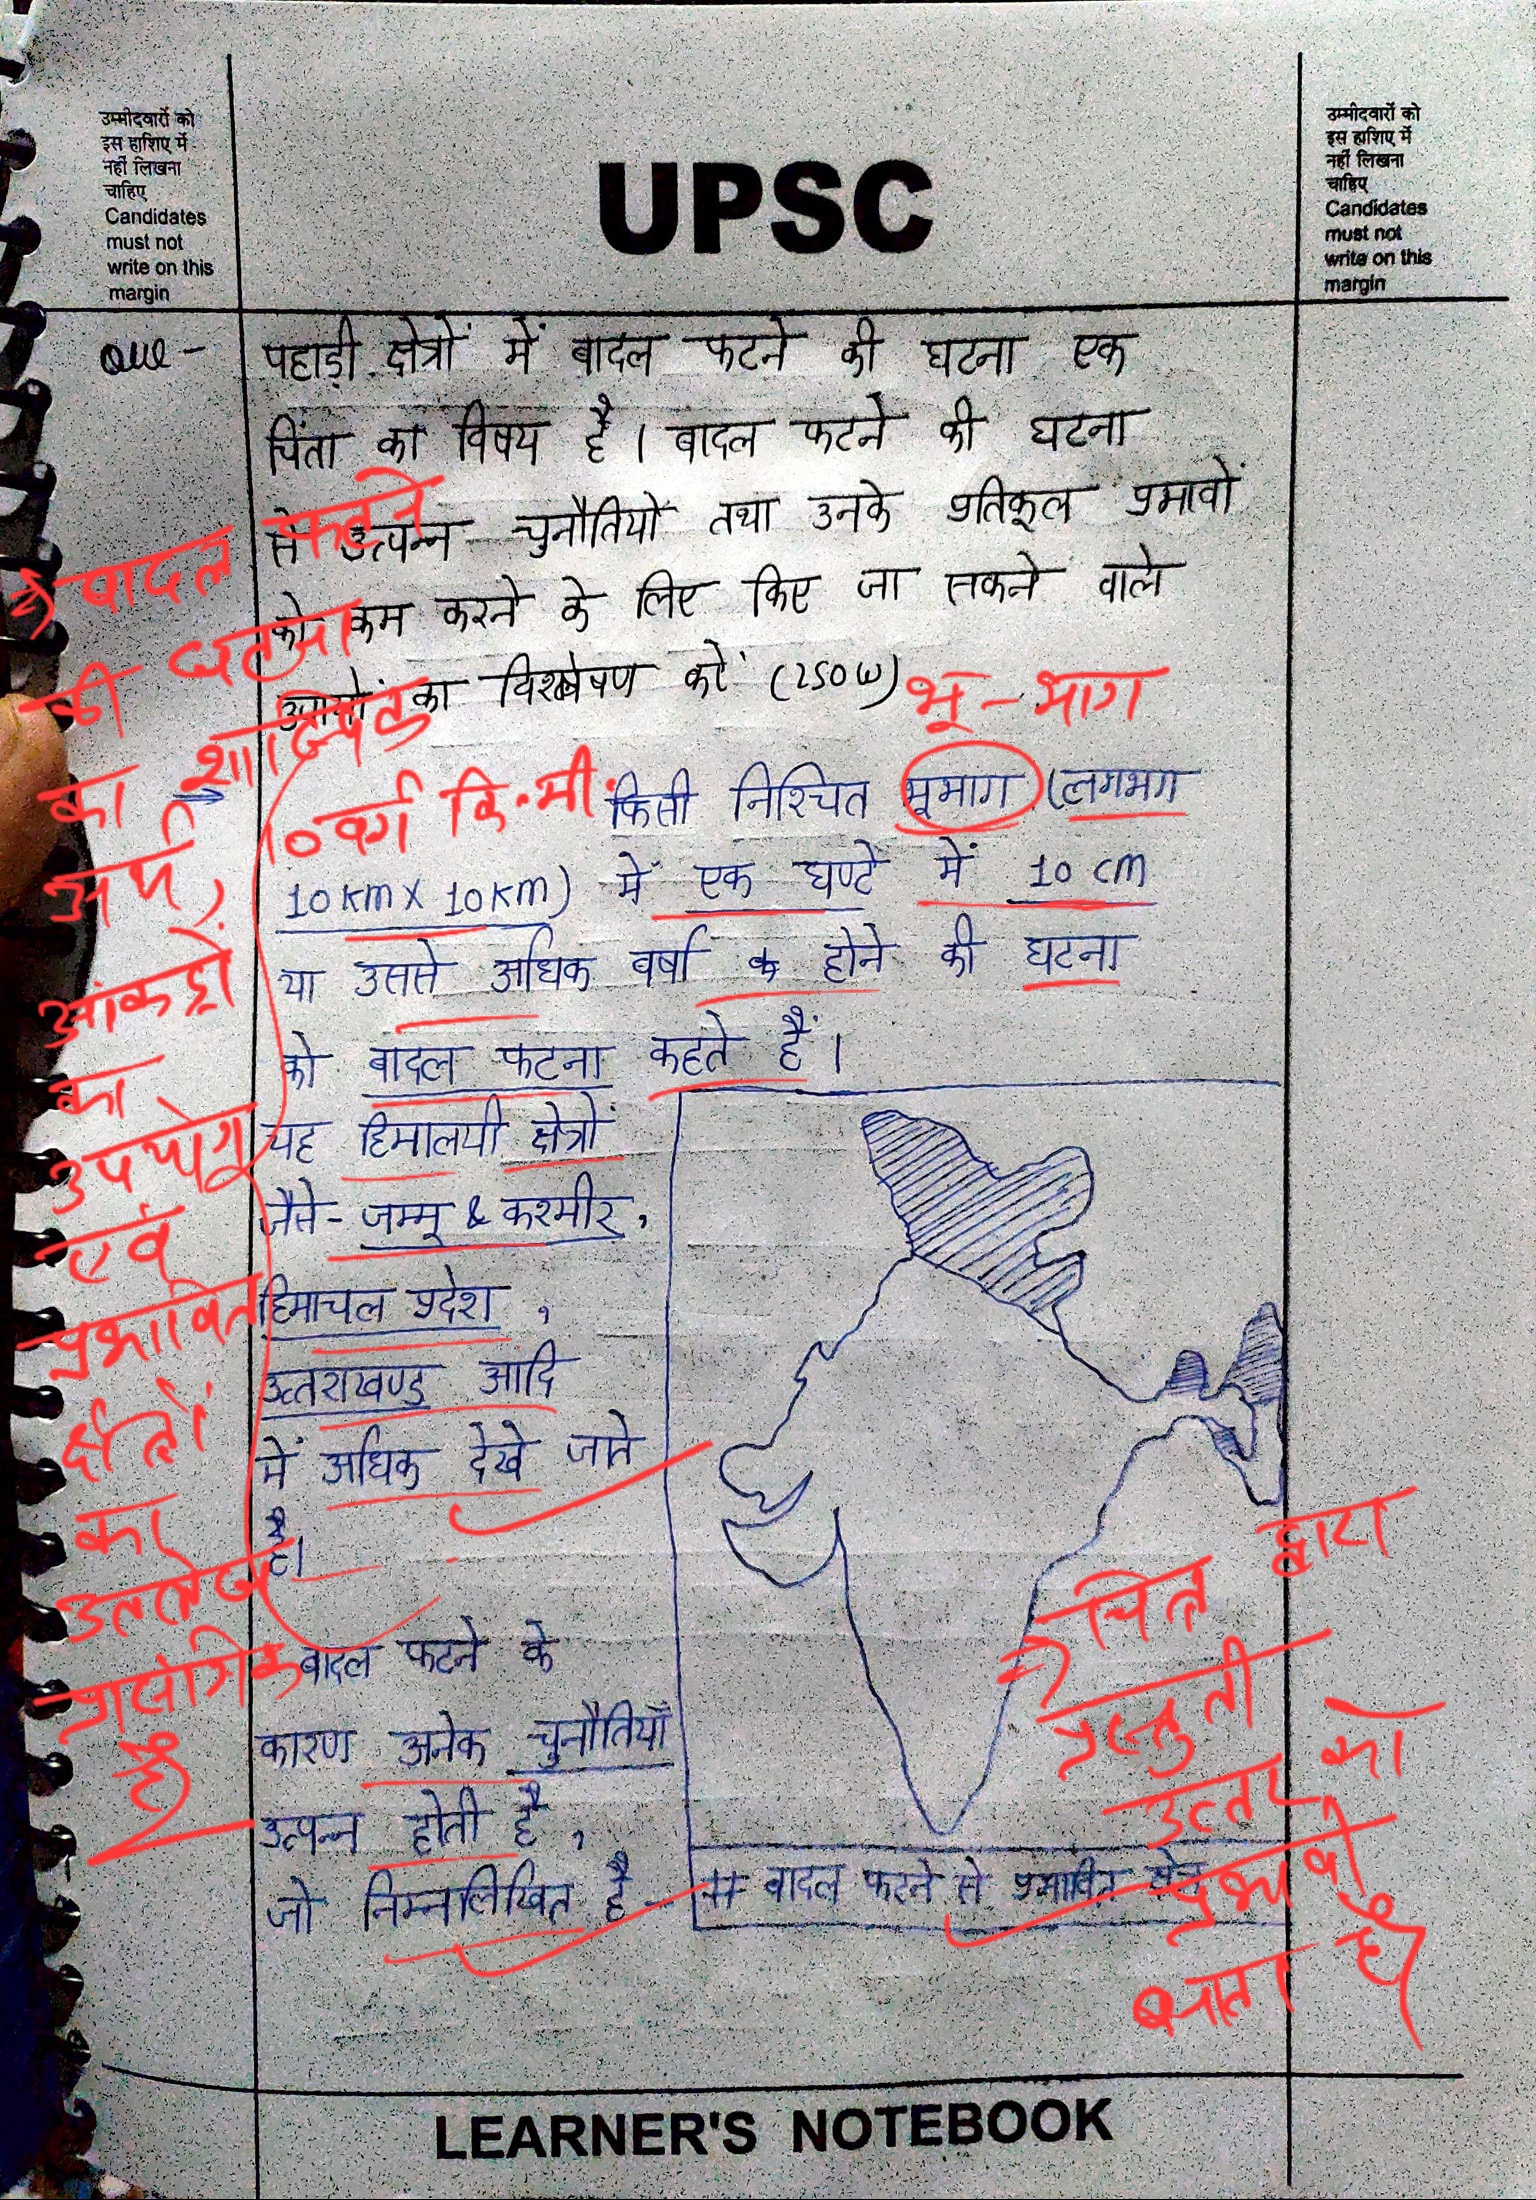 उम्मीदवारों को
इस हाशिए में
नहीं लिखना
चाहिए
Candidates
must not
write on this
margin
UPSC
उम्मीदवारों को
इस हाशिए में
नहीं लिखना
चाहिए
Candidates
must not
write on this
margin
Que - पहाड़ी क्षेत्रों में बादल फटने की घटना एक
चिंता का विषय है । बादल फटने की घटना
से उत्पन्न चुनौतियों तथा उनके प्रतिकूल प्रभावों
को कम करने के लिए किए जा सकने वाले
उपायों का विश्लेषण करें (250w)
भू-भाग
10 वर्ग कि.मी.
किसी निश्चित भूभाग (लगभग
10 km x 10 km) में एक घण्टे में 10 cm
या उससे अधिक वर्षा के होने की घटना
को बादल फटना कहते हैं ।
यह हिमालयी क्षेत्रों
जैसे - जम्मू & कश्मीर,
हिमाचल प्रदेश ,
उत्तराखण्ड आदि
में अधिक देखे जाते
है।
बादल फटने के
कारण अनेक चुनौतियाँ
उत्पन्न होती है ,
जो निम्नलिखित है -
बादल फटने से प्रभावित क्षेत्र
बादल फटने
की घटना
का शाब्दिक
अर्थ,
आंकड़ों
का
उपयोग
एवं
प्रभावित
क्षेत्रों
का
उल्लेख
प्रासंगिक
है
चित्र द्वारा
प्रस्तुती
उत्तर को
प्रभावी
बनाता है
LEARNER'S NOTEBOOK